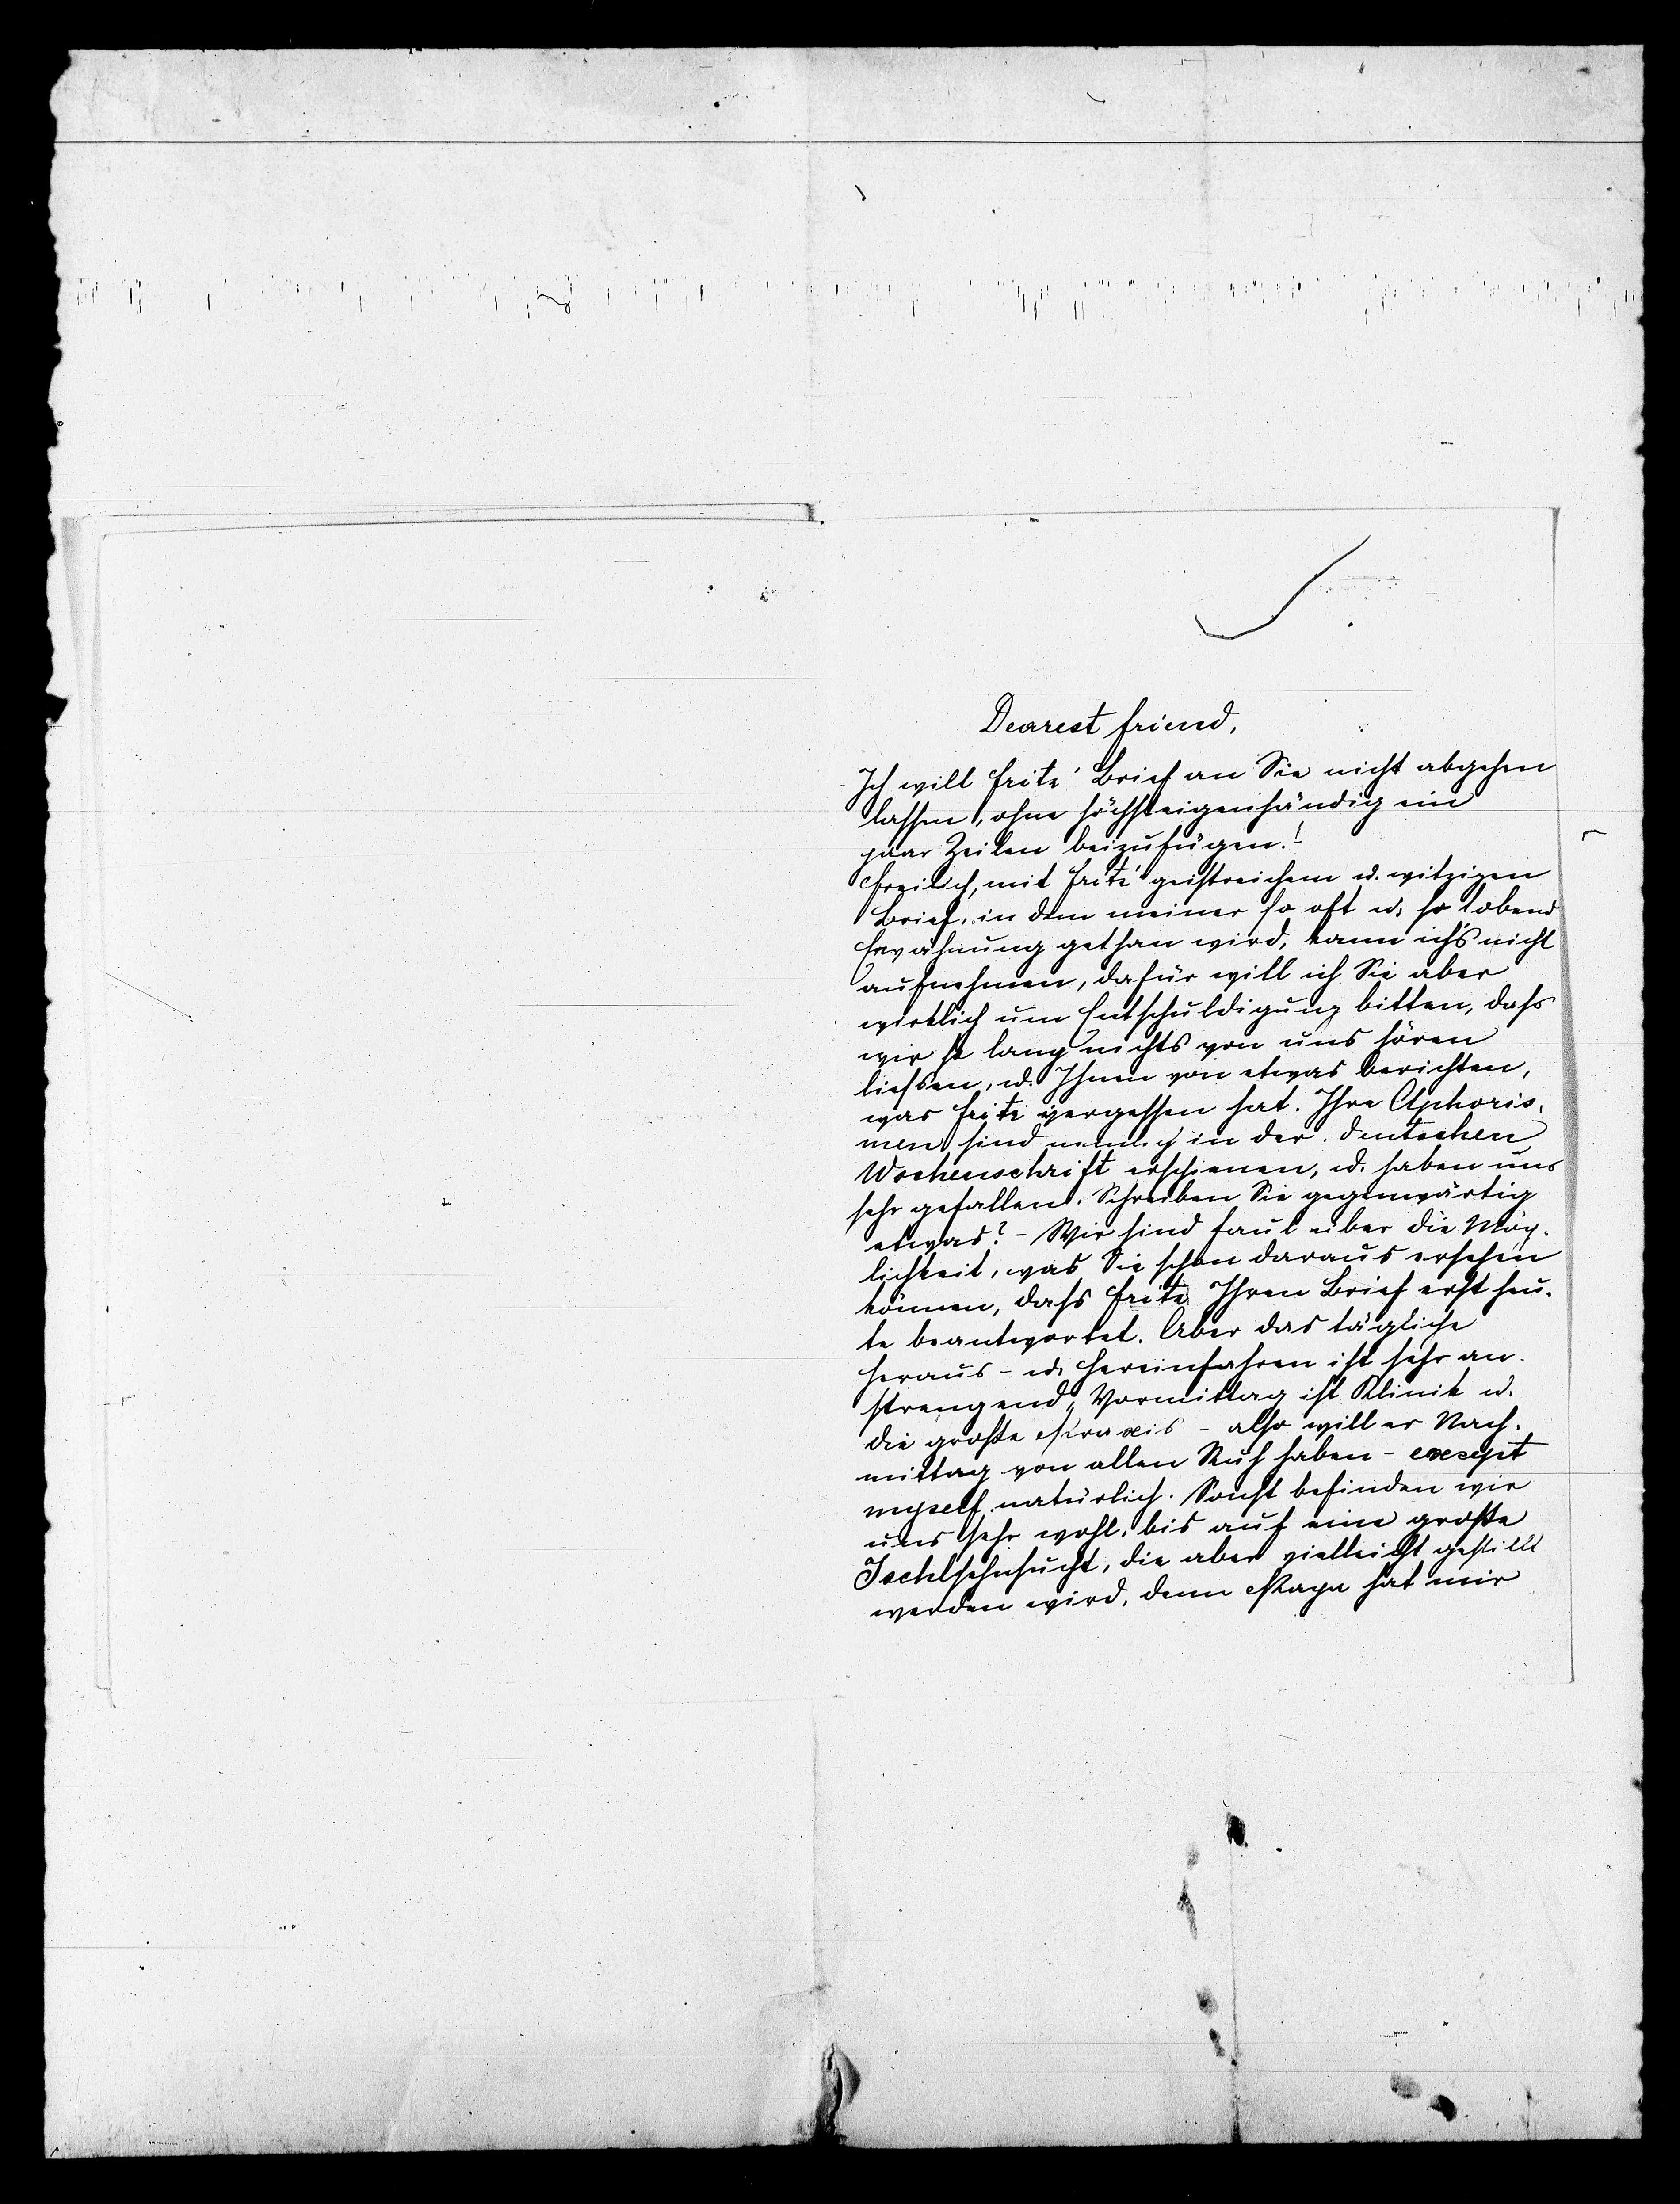 Dearest friend,
Ich will Fritz' Brief an Sie nicht abgehen
lassen, ohne höchsteigenhändig ein
paar Zeilen beizufügen.!
Freilich, mit Fritz' geistreichem u. witzigen
Brief, in dem meiner so oft u. so lobend
Erwähnung gethan wird, kann ich's nicht
aufnehmen, dafür will ich Sie aber
wirklich um Entschuldigung bitten, dass
wir so lang nichts von uns hören
liessen, u. Ihnen von etwas berichten,
was Fritz vergessen hat. Ihre Aphoris-
men sind nemlich in der deutschen
Wochenschrift erschienen, u. haben uns
sehr gefallen. Schreiben Sie gegenwärtig
etwas? – Wir sind faul über die Mög-
lichkeit, was Sie schon daraus ersehen
können, dass Fritz Ihren Brief erst heu-
te beantwortet. Aber das tägliche
Heraus- u. Hereinfahren ist sehr an-
strengend, Vormittag ist Klinik u.
die große Praxis – also will er Nach-
mittag von allen Ruh haben – except
myself natürlich. Sonst befinden wir
uns sehr wohl, bis auf eine große
Ischlsehnsucht, die aber vielleicht gestillt
werden wird, denn Papa hat mir